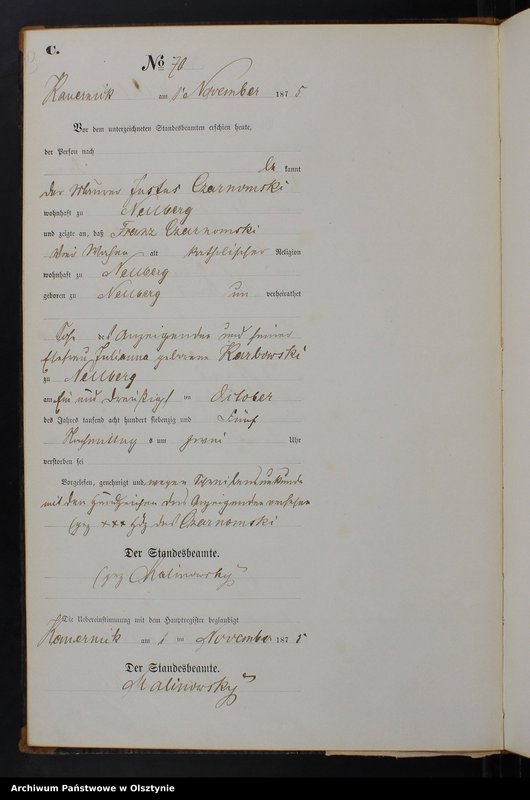 C.
No 70
Kauernik am 1ten November 1875
Vor dem unterzeichneten Standesbeamten erschien heute,
der Person nach
be kannt
der Maurer Justus Czarnomski
wohnhaft zu Neuberg
und zeigte an, daß Franz Czarnomski
drei Wochen alt katholischer Religion
wohnhaft zu Neuberg
geboren zu Neuberg un verheirathet
Sohn des Anzeigenden und seiner
Ehefrau Julianna geborene Karbowski
zu Neuberg
am ein und dreißigst en October
des Jahres tausend acht hundert siebenzig und fünf
Nachmittag s um zwei Uhr
verstorben sei
Vorgelesen, genehmigt und wegen Schreibensunkunde
mit den Handzeichen des Anzeigenden versehen
(gez +++ Hdz des Czarnomski
Der Standesbeamte.
(gez Malinowsky
Die Uebereinstimmung mit dem Hauptregister beglaubigt
Kauernik am 1 ten November 1875
Der Standesbeamte.
Malinowsky
Archiwum Państwowe w Olsztynie